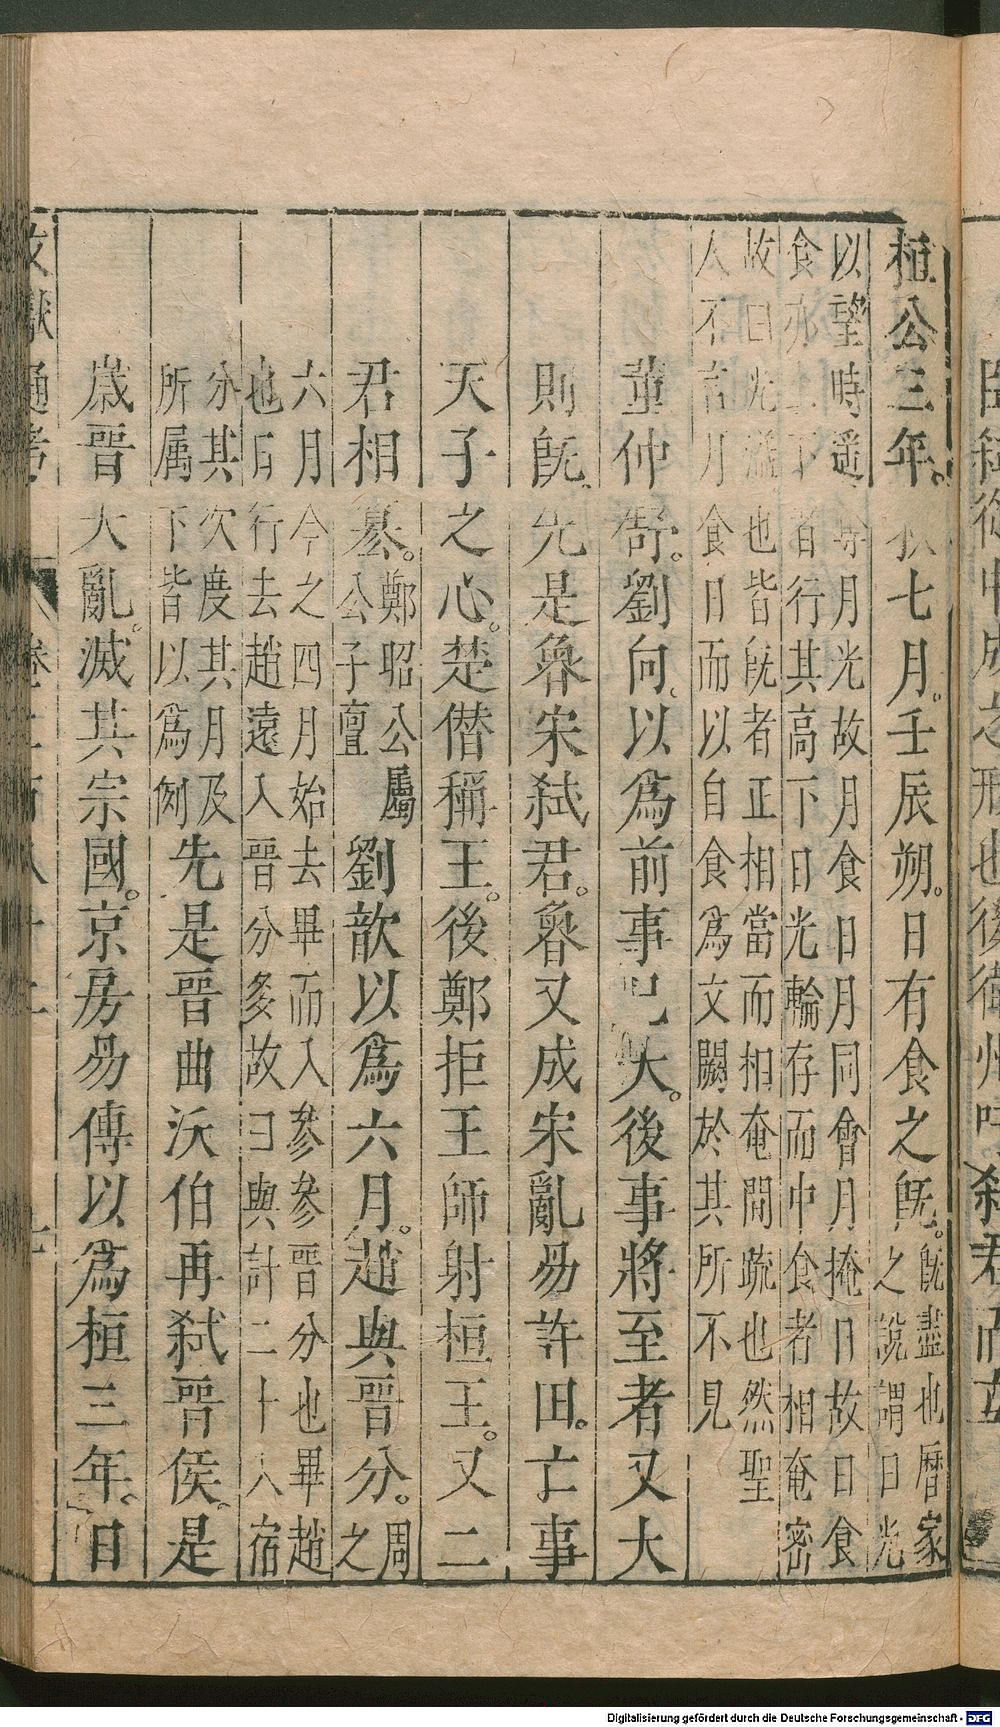 桓公三年秋七月壬辰朔日有食之既既盡也曆家之說謂日光
以望時遥奪月光故月食日月同會月掩日故日食食亦上下者行其高下日光輪存而中食者相奄密
故日光溢也皆既者正相當而相奄間疏也然聖人不言月食日而以自食爲文闕於其所不見
董仲舒劉向以爲前事已大後事將至者又大
則既先是魯宋弑君魯又成宋亂易許田亡事
天子之心楚僣稱王後鄭拒王師射桓王又二
君相簒鄭昭公厲公子亶劉歆以爲六月趙與晉分周之
六月今之四月始去畢而入參參晉分也畢趙也日行去趙遠入晉分多故曰與計二十八宿
分其次度其月及所属下皆以爲例先是晉曲沃伯再弑晉侯是
歳晉大亂滅其宗國京房易傳以爲桓三年日
文獻通考
Digitalisierung gefördert durch die Deutsche Forschungsgemeinschaft - DFG